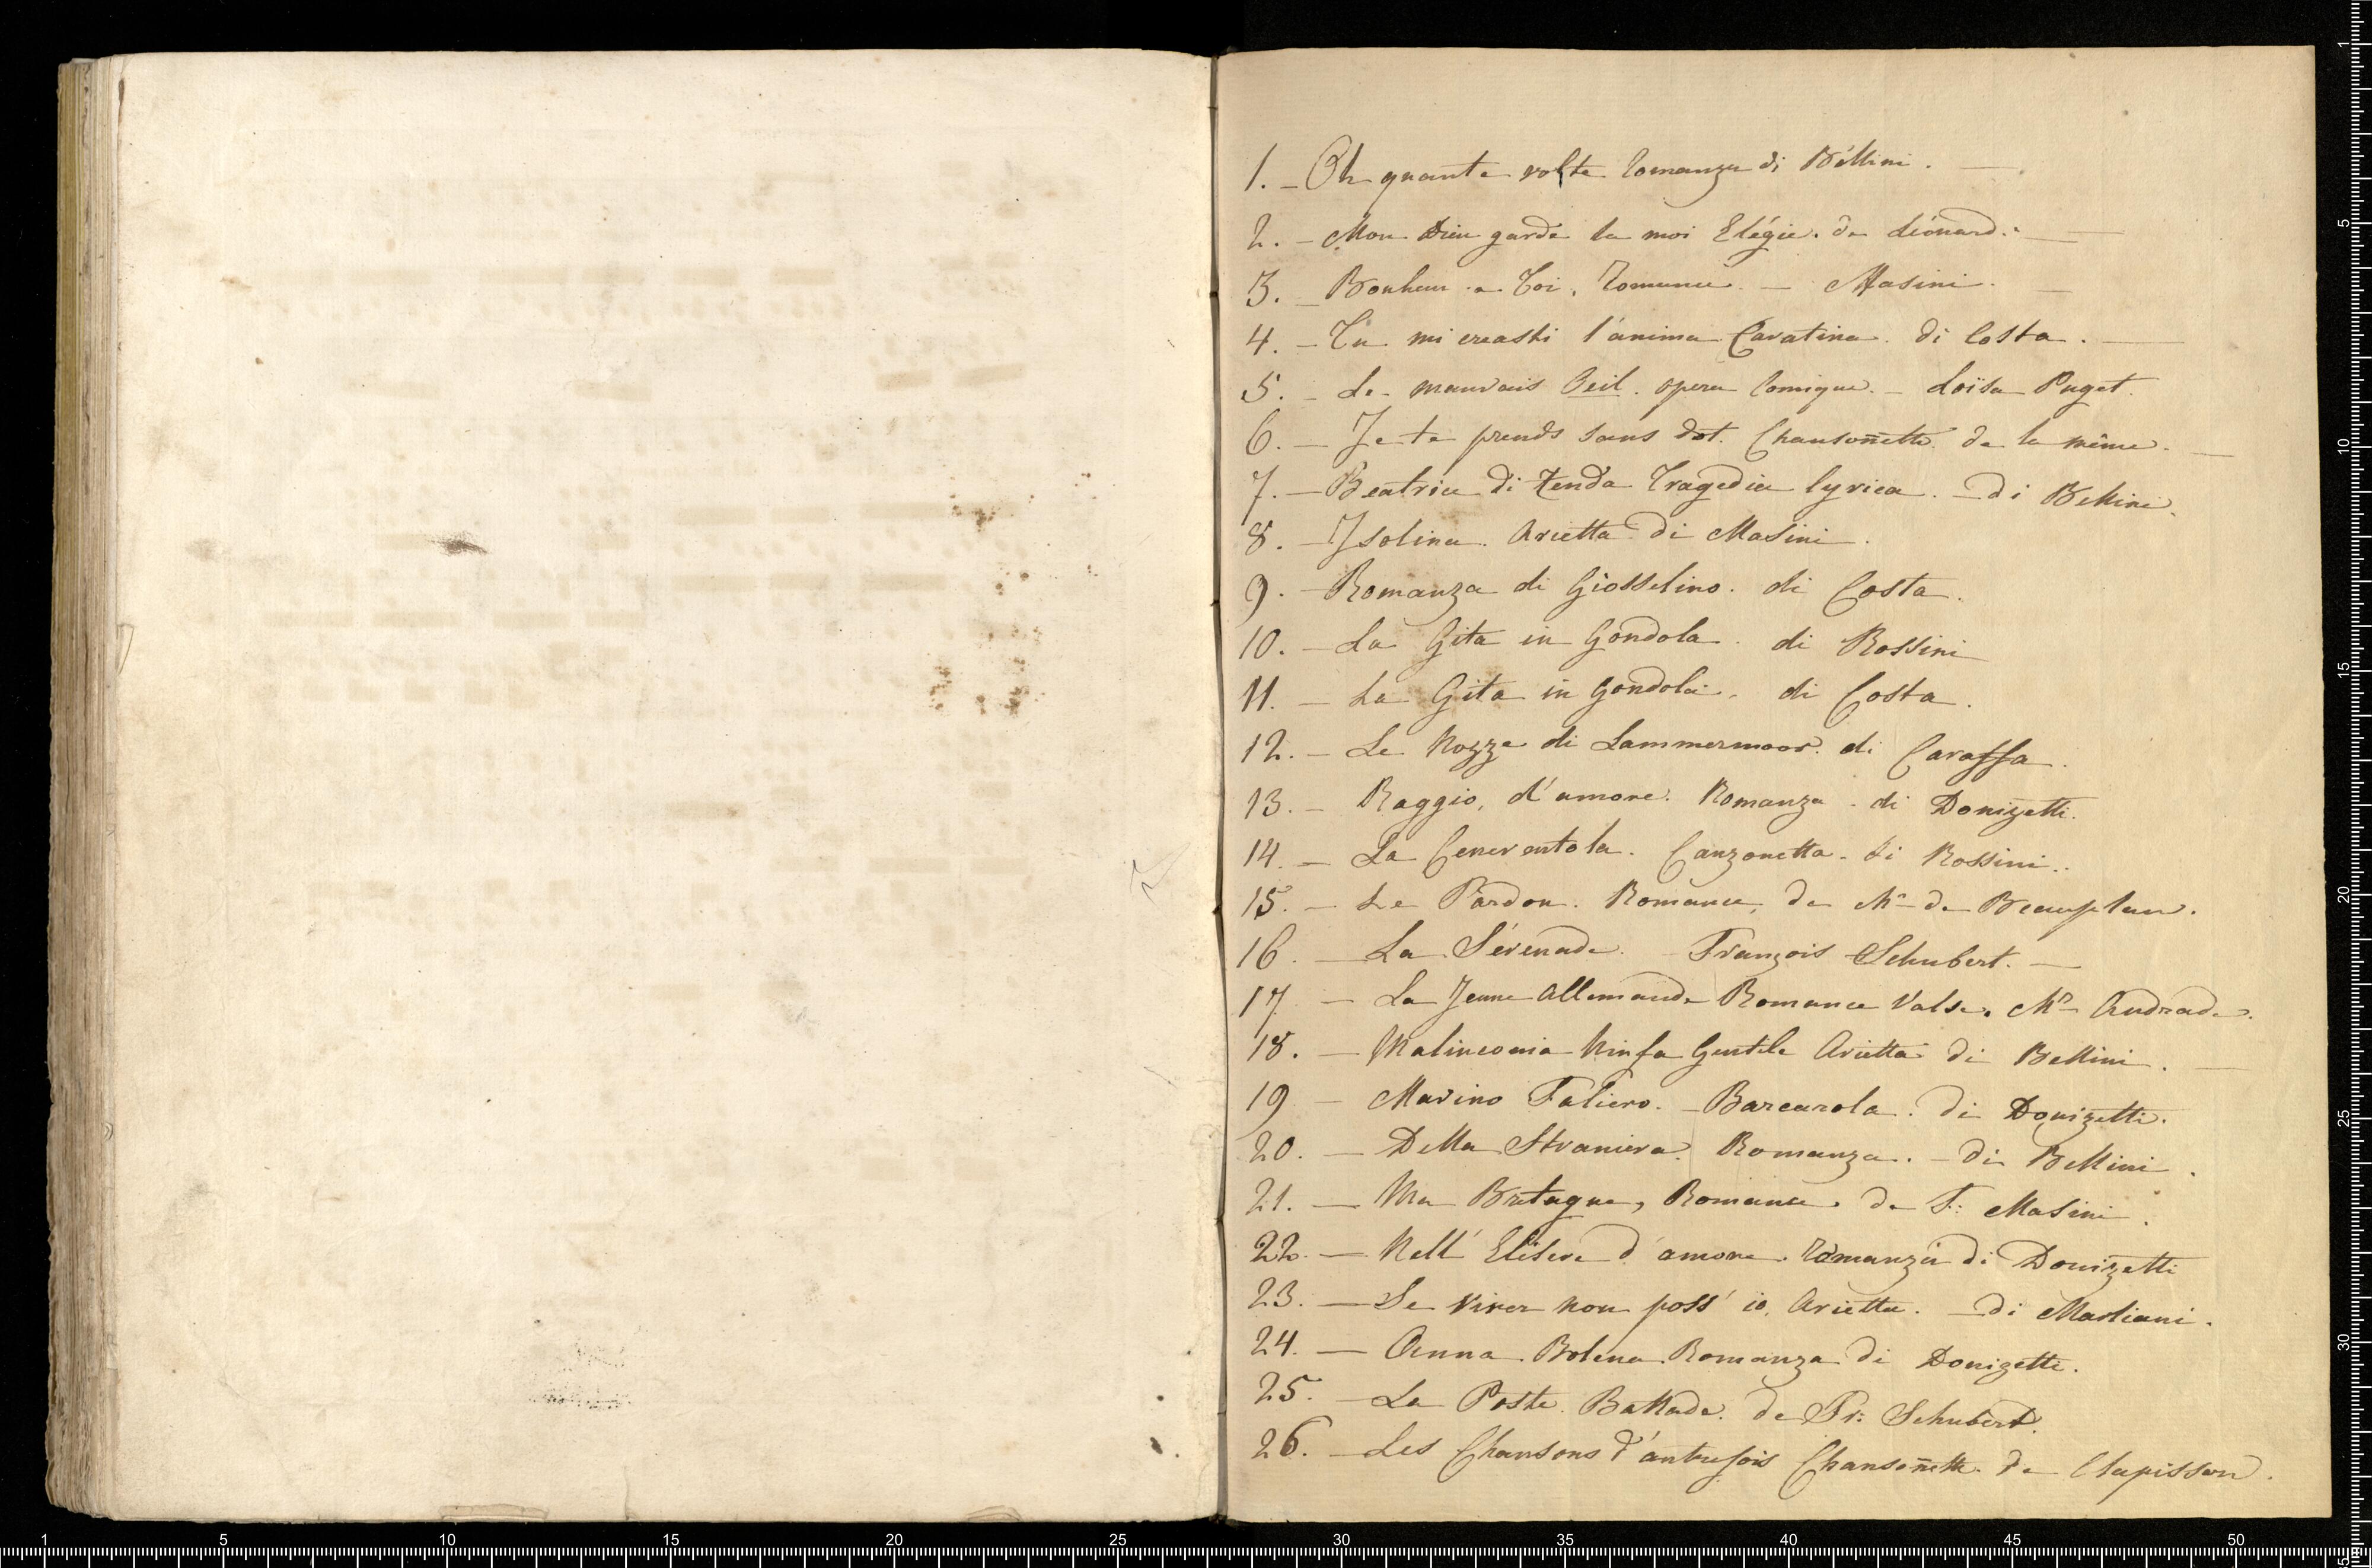 1. – Oh quante volte Romanza di Bellini. —
2. – Mon Dieu garde la moi Elégie. de Léonard. —
3. – Bonheur a Toi, Romance. – Masini. —
4. – Tu mi creasti l'anima Cavatina. di Costa. —
5. – Le mauvais Oeil. opera Comique. – Loïsa Puget.
6. – Je te prends sans dot. Chansoñette de la même. —
7. – Beatrice di Tenda Tragedia lyrica. – di Bellini.
8. – Isolina. Arietta di Masini.
9. – Romanza di Giosselino. di Costa.
10. – La Gita in Gondola. di Rossini
11. – La Gita in Gondola. di Costa.
12. – Le Nozze di Lammermoor. di Caraffa.
13. – Raggio, d'amore. Romanza. di Donizetti.
14. – La Cenerentola. Canzonetta. di Rossini.
15. – Le Pardon. Romance, de Mr de Beauplan.
16. – La Sérénade. – François Schubert. —
17 – La Jeune Allemande Romance Valse. Mr Andrade.
18. – Malinconia Ninfa Gentile Arietta di Bellini. —
19 – Marino Faliero. – Barcarola. di Donizetti.
20. – Della Straniera. Romanza. – di Bellini.
21. – Ma Bretagne, Romance. de F: Masini.
22. – Nell' Elisire d'amore. Romanza di Donizetti
23. – Se viver non poss' io, Arietta. – di Marliani.
24. – Anna Bolena Romanza di Donizetti.
25. – La Poste. Ballade. de Fr: Schubert.
26. – Les Chansons d'autrefois Chansoñette de Clapisson.
1 5 10 15 20 25 30 35 40 45 50
1 5 10 15 20 25 30